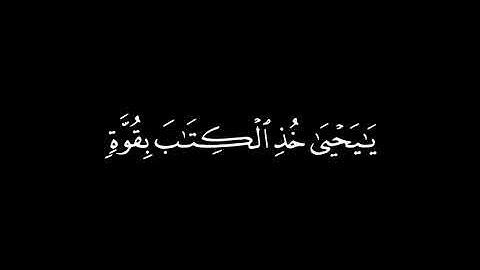 يَـٰيَحْيَىٰ خُذِ ٱلْكِتَـٰبَ بِقُوَّةٍۢ